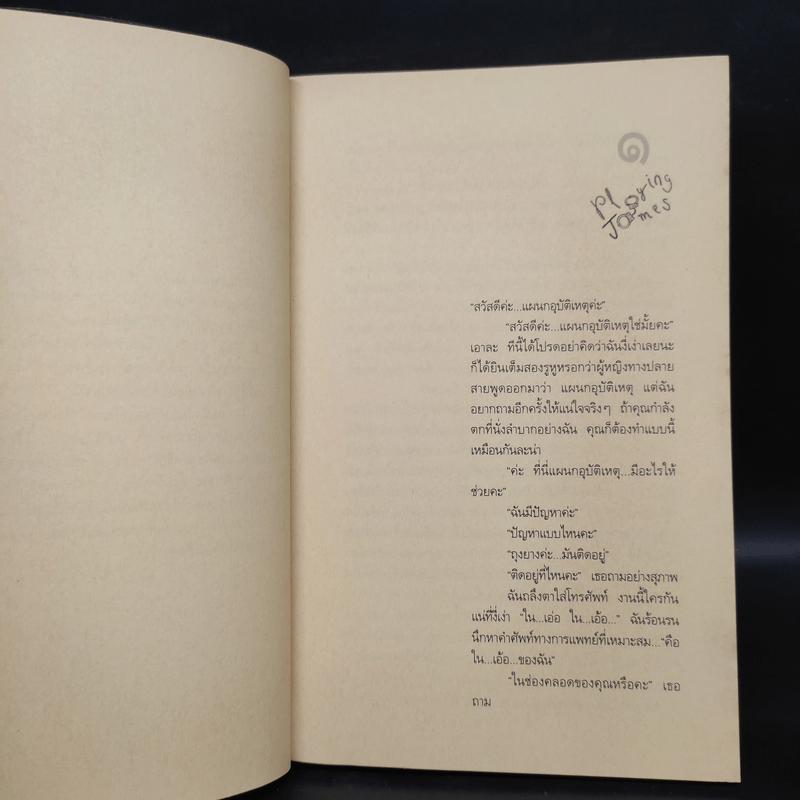 ๑
Playing
James
“สวัสดีค่ะ...แผนกอุบัติเหตุค่ะ”
“สวัสดีค่ะ...แผนกอุบัติเหตุใช่มั้ยคะ”
เอาละ ทีนี้ได้โปรดอย่าคิดว่าฉันงี่เง่าเลยนะ
ก็ได้ยินเต็มสองรูหูหรอกว่าผู้หญิงทางปลาย
สายพูดออกมาว่า แผนกอุบัติเหตุ แต่ฉัน
อยากถามอีกครั้งให้แน่ใจจริงๆ ถ้าคุณกำลัง
ตกที่นั่งลำบากอย่างฉัน คุณก็ต้องทำแบบนี้
เหมือนกันละน่า
“ค่ะ ที่นี่แผนกอุบัติเหตุ...มีอะไรให้
ช่วยคะ”
“ฉันมีปัญหาค่ะ”
“ปัญหาแบบไหนคะ”
“ถุงยางค่ะ...มันติดอยู่”
“ติดอยู่ที่ไหนคะ” เธอถามอย่างสุภาพ
ฉันถลึงตาใส่โทรศัพท์ งานนี้ใครกัน
แน่ที่งี่เง่า “ใน...เอ่อ ใน...เอ้อ...” ฉันร้อนรน
นึกหาคำศัพท์ทางการแพทย์ที่เหมาะสม...“คือ
ใน...เอ้อ...ของฉัน”
“ในช่องคลอดของคุณหรือคะ” เธอ
ถาม